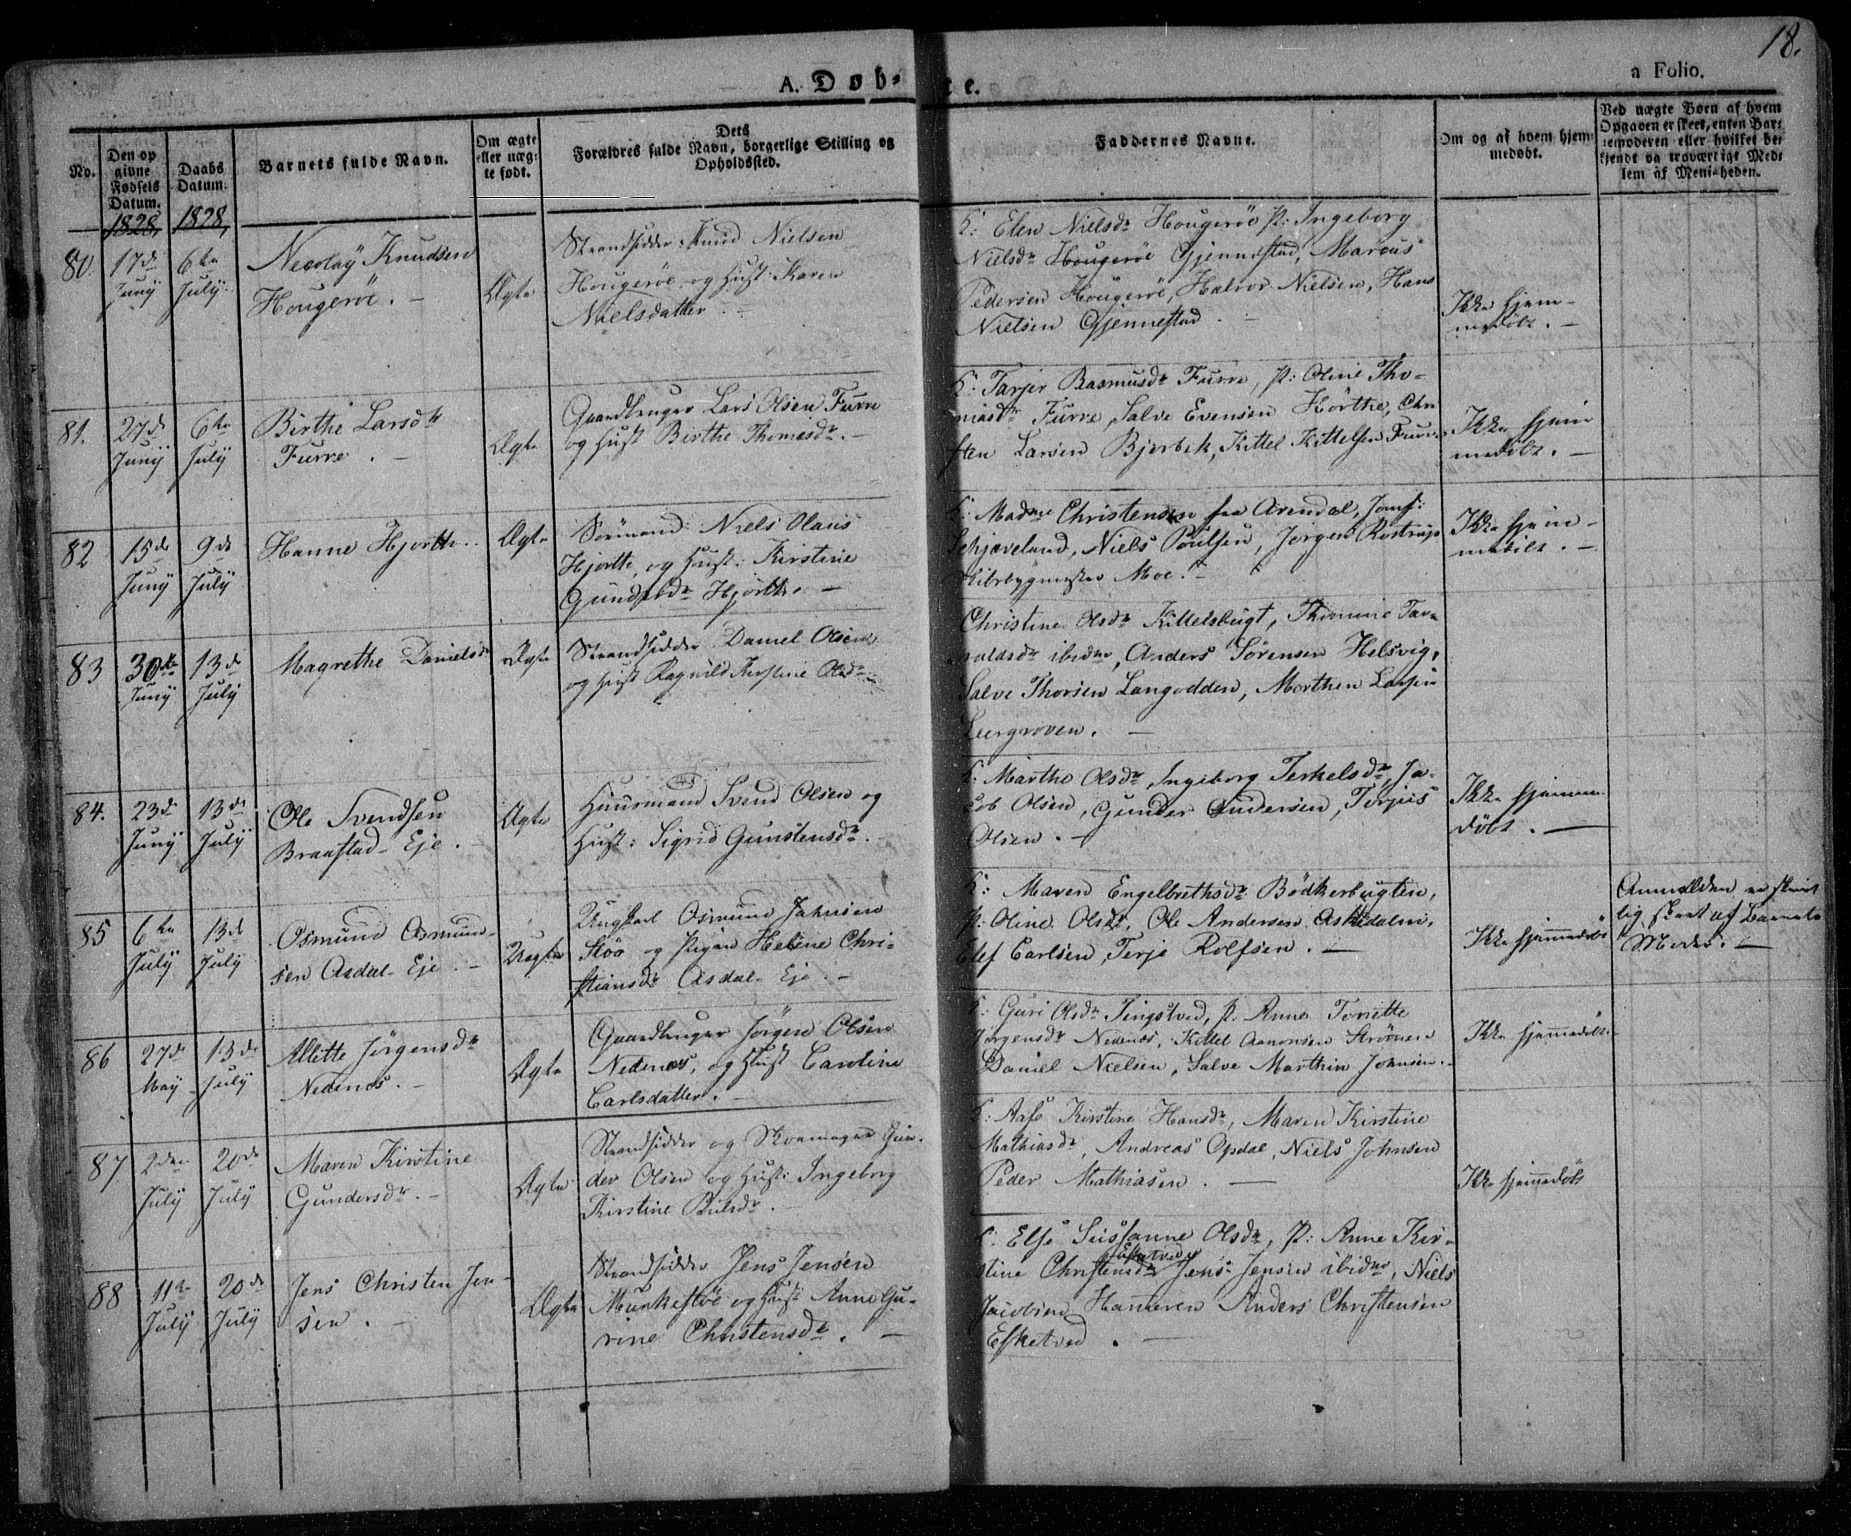 18.
A. Døb- te.
a Folio.
No.
Den op
givne
Fødsels
Datum.
Daabs
Datum.
Barnets fulde Navn.
Om ægte
eller uæg-
te født.
Dets
Forældres fulde Navn, borgerlige Stilling og
Opholdssted.
Faddernes Navne.
Om og af hvem hjem-
medøbt.
Ved uægte Børn af hvem
Opgaven er skeet, enten Bar-
nemoderen eller hvilket be-
kjendt og troværdigt Med-
lem af Menigheden.
1828, 1828,
80. 17de Juny
6te July
Nicolay Knudsen
Hougerøe. –
Ægte
Strandsidder: Knud Nielsen
Hougerøe, og Hust: Karen
Nielsdatter. –
K: Elen Nielsdr Hougerøe P: Ingeborg
Nielsdr Hougerøe Gjennestad, Marcus
Pedersen Hougerøe, Halvor Nielsen, Hans
Nielsen Gjennestad –
Ikke hjem-
medøbt. –
81. 27de Juny
6te July
Birthe Larsdr
Furre. –
Ægte
Gaardbruger Lars Olsen Furre
og Hust Birthe Thomasdr. –
K: Tarjer Rasmusdr Furre, P: Oline Tho-
masdr Furre, Salve Evensen Hørthe, Chri-
sten Larsen Bjerbek, Kittel Kittelsen Furre
Ikke hjem
medøbt. –
82 15de Juny
9de July
Hanne Hjorth..
Ægte
Sørmand: Niels Olaus
Hjorth, og Hust: Kirstine
Hjorth. –
K: Madme Christensen fra Arendal, Jomf:
Schjæveland, Niels Poulsen, Jørgen Rostrup
Skibsbygmester Moe. –
Ikke hjem-
medøbt. –
83 30te Juny
13de July
Magrethe Danielsdr
Ægte
Strandsidder Daniel Olsen
og Hust Ragnild Kirstine Olsdr
Christine Olsdr Kittelsbugt, Thomine Tar-
aldsdr ibidm, Anders Sørensen Helsvig,
Salve Thorsen Langodden, Morthen Larsen
Leergroven. –
84. 23de Juny
13de July
Ole Svendsen
Braastad-Eje.
Ægte
Huusmand Svend Olsen og
Hust: Sigrid Gunstensdr.
K: Marthe Olsdr, Ingeborg Terkelsdr, Ja-
cob Olsen, Gunder Andersen, Terjus
Olsen. –
Ikke hjemme
døbt. –
85 6te July
13de July
Osmund Osmund-
sen Asdal-Eje. –
Uægte
Ungkarl Osmund Jahnsen
Støe og Pigen Helene Chri-
stiansdr Asdal-Eje. –
K: Maren Engelbrethsdr Bødkerbugten,
P: Oline Olsdr, Ole Andersen Askedalen,
Elef Carlsen, Terje Rolfsen. –
Ikke hjemmedøbt
Anmelden er skrivt-
lig skeet af Barnets
Moder. –
86 27de May
13de July
Allette Jørgensdr
Nedenæs. –
Ægte
Gaardbruger Jørgen Olsen
Nedenæs, og Hust Caroline
Carlsdatter. –
K: Guri Olsdr Tingstved, P: Anne Torritte
Jørgensdr Nedenæs, Kittel Aanonsen Strømen
Daniel Nielsen, Salve Marthin Johnsen. –
Ikke hjemmedøbt.
87. 2den July
20de July
Maren Kirstine
Gundersdr. –
Ægte
Strandsidder og Skoemager Gun-
der Olsen og Hust: Ingeborg
Kirstine
K: Kirstine Hansdr, Maren Kirstine
Mathiasdr, Andreas Opdal, Niels Johnsen
Peder Mathiasen. –
Ikke hjemmedøbt
88 11te July
20de July
Jens Christen Jen-
sen. –
Ægte
Strandsidder Jens Jensen
Munkestøe og Hust Anne Gu-
rine Christensdr. –
K: Else Sussanne Olsdr, P: Anne Kir-
stine Christensdr Esketved Jens Jensen ibidm, Niels
Jacobsen Hammeren Anders Christensen
Esketved. –